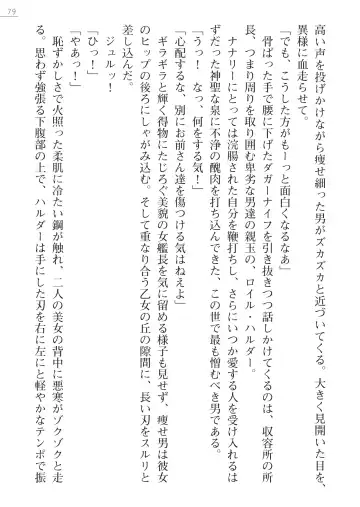 79
高い声を投げかけながら痩せ細った男がズカズカと近づいてくる。大きく見開いた目を、
異様に血走らせて。
「でも、こうした方がもーっと面白くなるなあ」
骨ばった手で腰に下げたダガーナイフを引き抜きつつ話しかけてくるのは、収容所の所
長、つまり周りを取り囲む卑劣な男達の親玉の、ロイル・ハルダー。
ナナリーにとっては浣腸された自分を鞭打ちし、さらにいつか愛する人を受け入れるは
ずだった神聖な泉に不浄の醜肉を打ち込んできた、この世で最も憎むべき男である。
「うっ！　なっ、何をする気！」
「心配するな、別にお前さん達を傷つける気はねえよ」
ギラギラと輝く得物にたじろぐ美貌の女艦長を気に留める様子も見せず、痩せ男は彼女
のヒップの後ろにしゃがみ込む。そして重なり合う乙女の丘の隙間に、長い刃をスルリと
差し込んだ。
ジュルッ！
「ひっ！」
「やあっ！」
恥ずかしさで火照った柔肌に冷たい鋼が触れ、二人の美女の背中に悪寒がゾクゾクと走
る。思わず強張る下腹部の上で、ハルダーは手にした刃を右に左にと軽やかなテンポで振